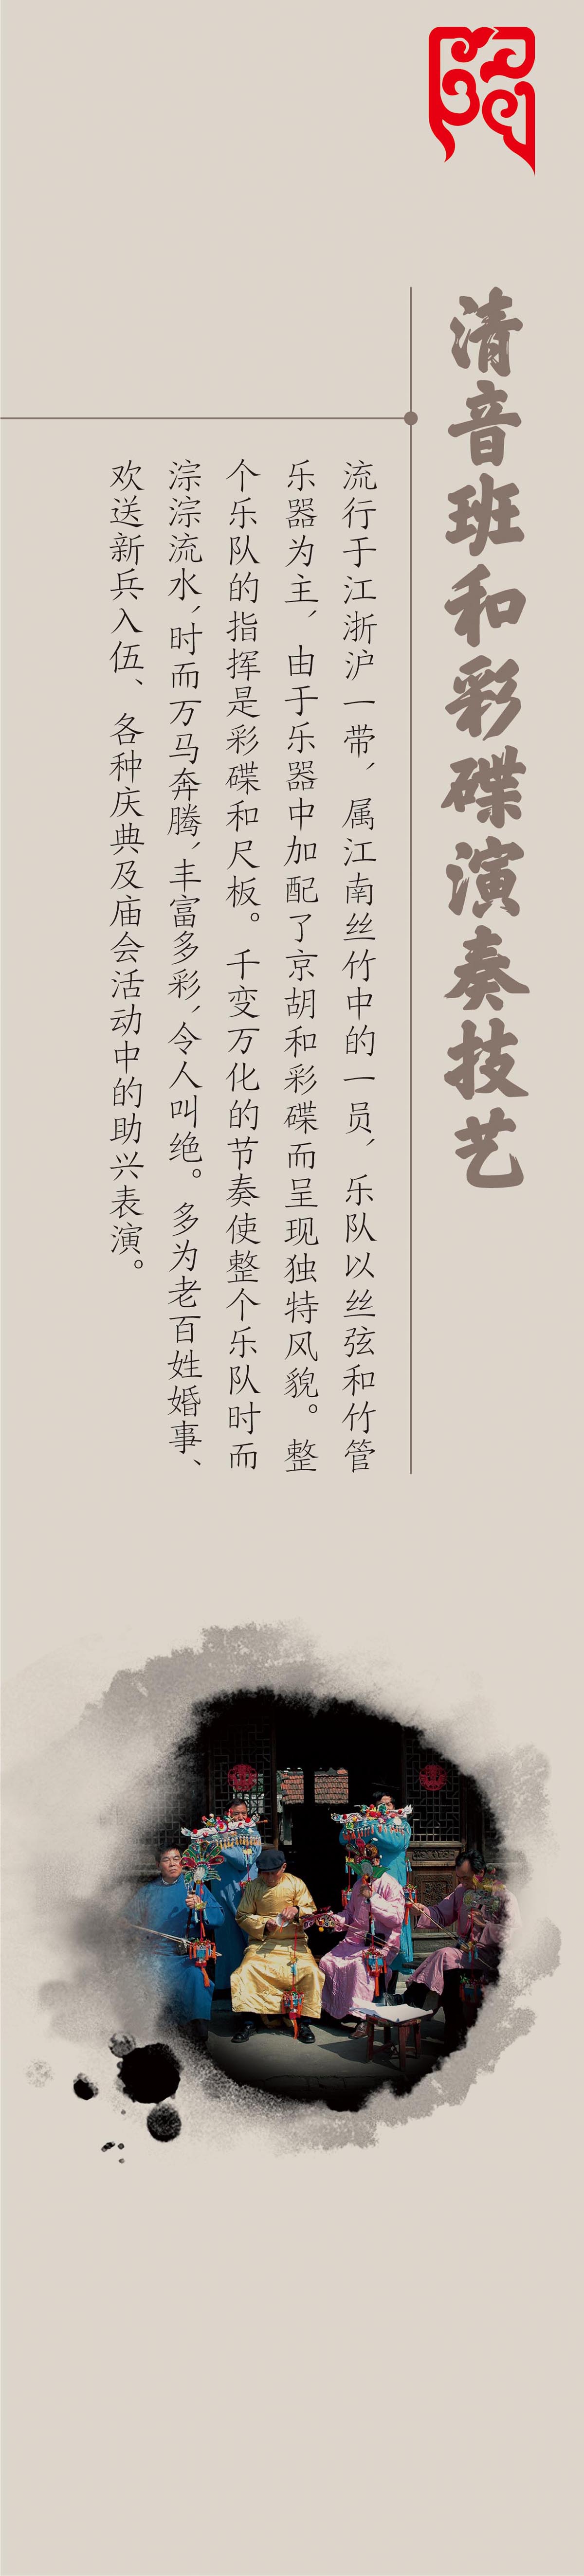 清音班和彩碟演奏技艺
流行于江浙沪一带，属江南丝竹中的一员，乐队以丝弦和竹管
乐器为主，由于乐器中加配了京胡和彩碟而呈现独特风貌。整
个乐队的指挥是彩碟和尺板。千变万化的节奏使整个乐队时而
淙淙流水，时而万马奔腾，丰富多彩，令人叫绝。多为老百姓婚事、
欢送新兵入伍、各种庆典及庙会活动中的助兴表演。